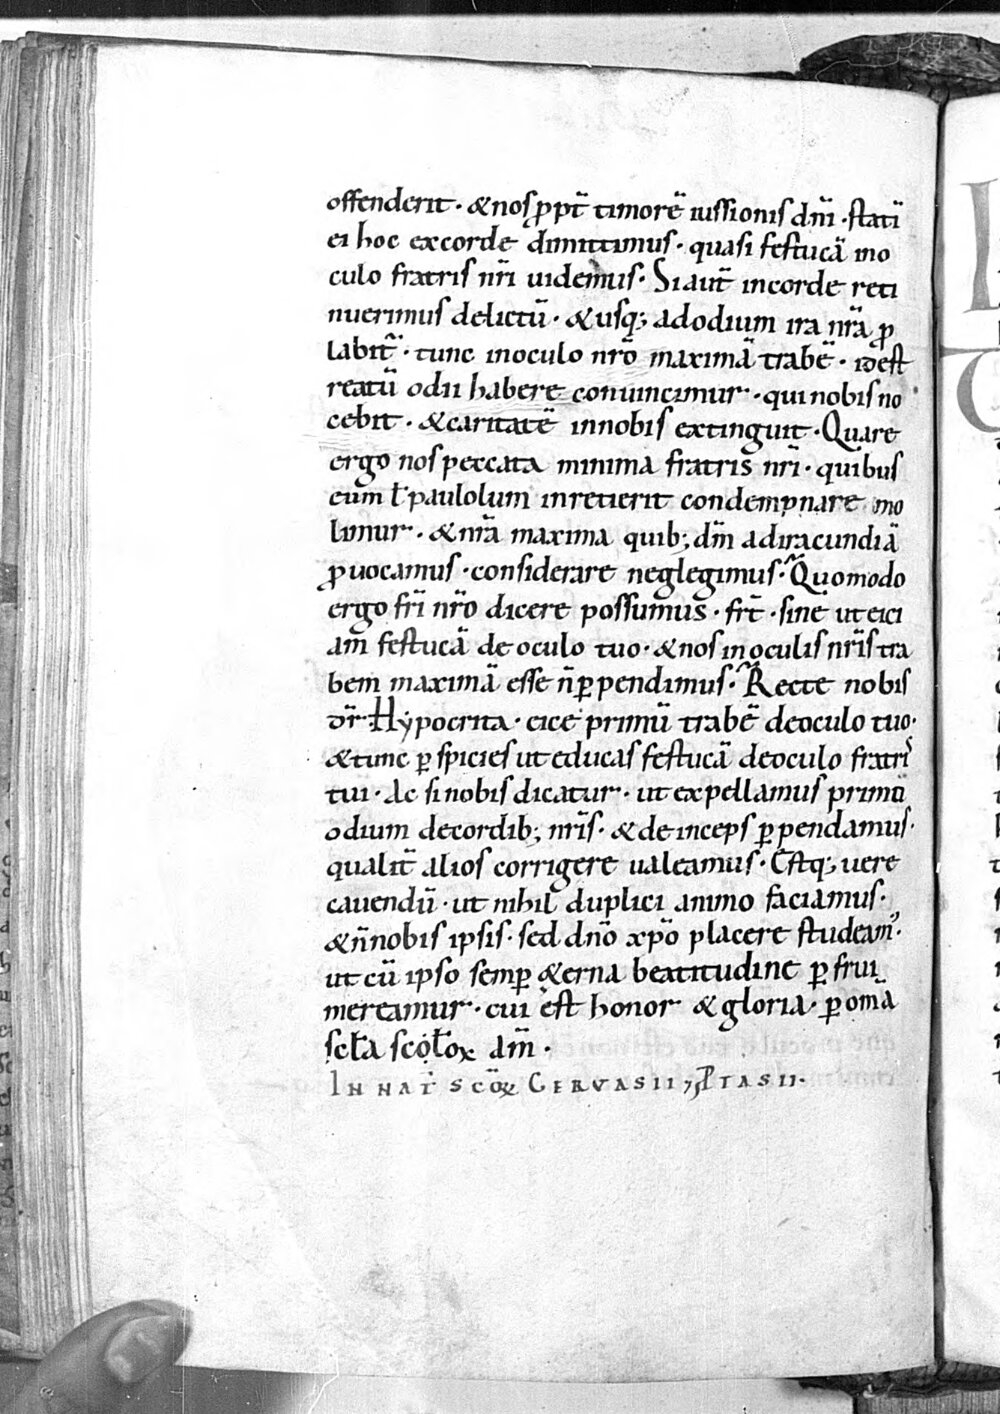 offenderit · & nos ꝓpt̄ timorē iussionis dn̄i · statī
ei hoc excorde dimittimus · quasi festucā ino
culo fratris nr̄i uidemus · Si aut̄ incorde reti
nuerimus delictū · & usq; adodium ira nr̄a ꝓ
labit̄ · tunc inoculo nr̄o maximā trabē · idest
reatū odii habere conuincimur · qui nobis no
cebit · & caritatē innobis extinguit · Quare
ergo nos peccata minima fratris nr̄i · quibus
eum ł paululum inretierit condempnare mo
limur · & nr̄a maxima quib; dn̄m adiracundiā
ꝓuocamus · considerare neglegimus · Quomodo
ergo fr̄i nr̄o dicere possumus · frt̄ · sine ut eici
am̄ festucā de oculo tuo · & nos inoculis nr̄is tra
bem maximā esse n̄ ꝑpendimus · Recte nobis
dr̄ Hẏpocrita · eice primū trabē deoculo tuo ·
& tunc ꝑspicies ut educas festucā deoculo fratris
tui · Ac si nobis dicatur · ut expellamus primū
odium decordib; nr̄is · & deinceps ꝑpendamus ·
qualit̄ alios corrigere ualeamus · Estq; uere
cauendū · ut nihil duplici animo faciamus ·
& n̄ nobis ipsis · sed dn̄o xp̄o placere studeam᾽ ·
ut cū ipso semꝑ &erna beatitudine ꝑfrui
mereamur · cui est honor & gloria · ꝑ om̄a
sc̄ła sc̄łoꝝ am̄ ·
IN NAT̄ SC̄OꝜ GERVASII ⁊ ꝒTASII ·